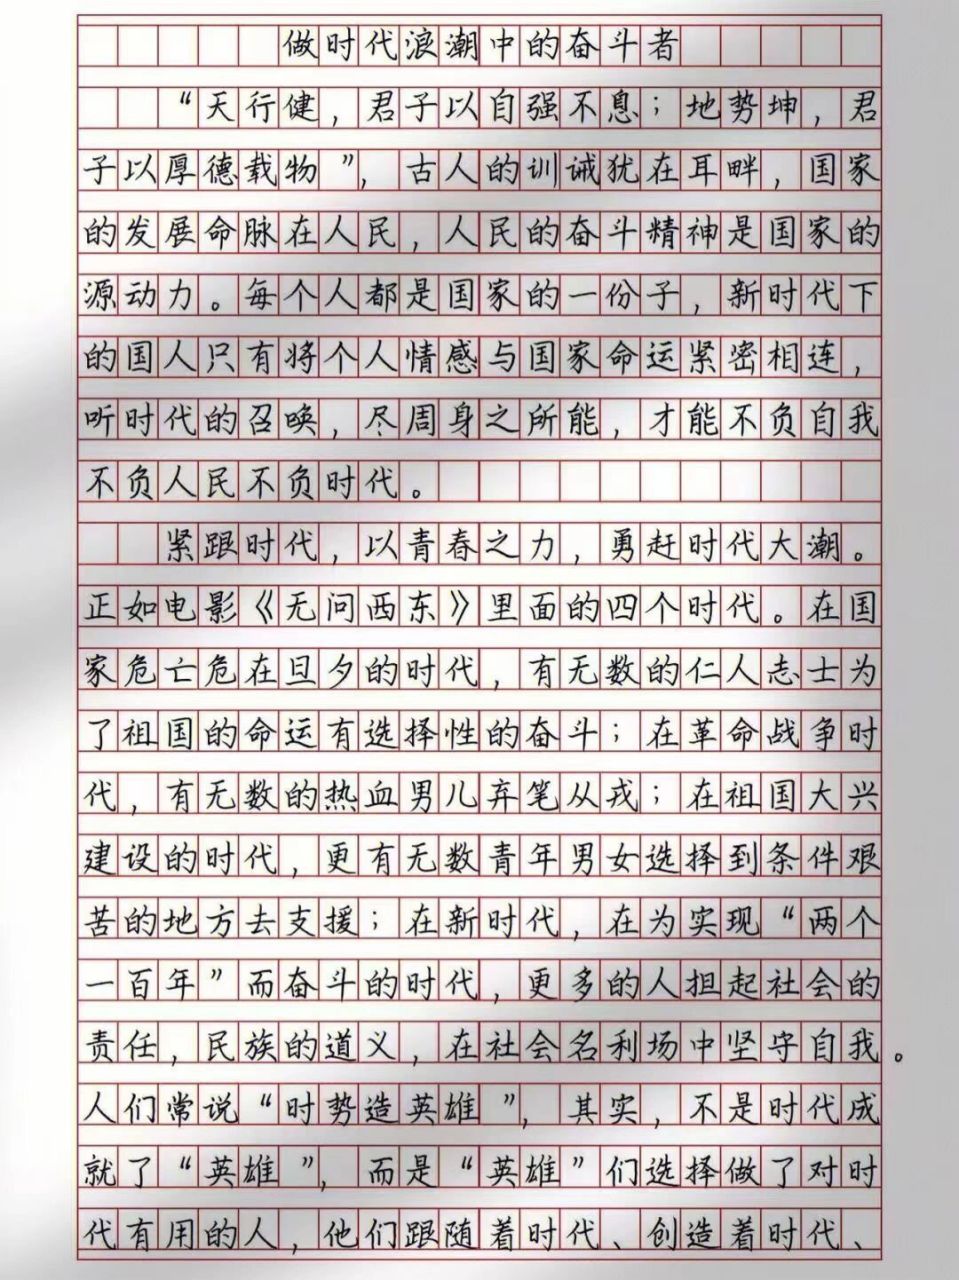 做时代浪潮中的奋斗者
“天行健，君子以自强不息；地势坤，君
子以厚德载物”，古人的训诫犹在耳畔，国家
的发展命脉在人民，人民的奋斗精神是国家的
源动力。每个人都是国家的一份子，新时代下
的国人只有将个人情感与国家命运紧密相连，
听时代的召唤，尽周身之所能，才能不负自我
不负人民不负时代。
紧跟时代，以青春之力，勇赶时代大潮。
正如电影《无问西东》里面的四个时代。在国
家危亡危在旦夕的时代，有无数的仁人志士为
了祖国的命运有选择性的奋斗；在革命战争时
代，有无数的热血男儿弃笔从戎；在祖国大兴
建设的时代，更有无数青年男女选择到条件艰
苦的地方去支援；在新时代，在为实现“两个
一百年”而奋斗的时代，更多的人担起社会的
责任，民族的道义，在社会名利场中坚守自我。
人们常说“时势造英雄”，其实，不是时代成
就了“英雄”，而是“英雄”们选择做了对时
代有用的人，他们跟随着时代、创造着时代、